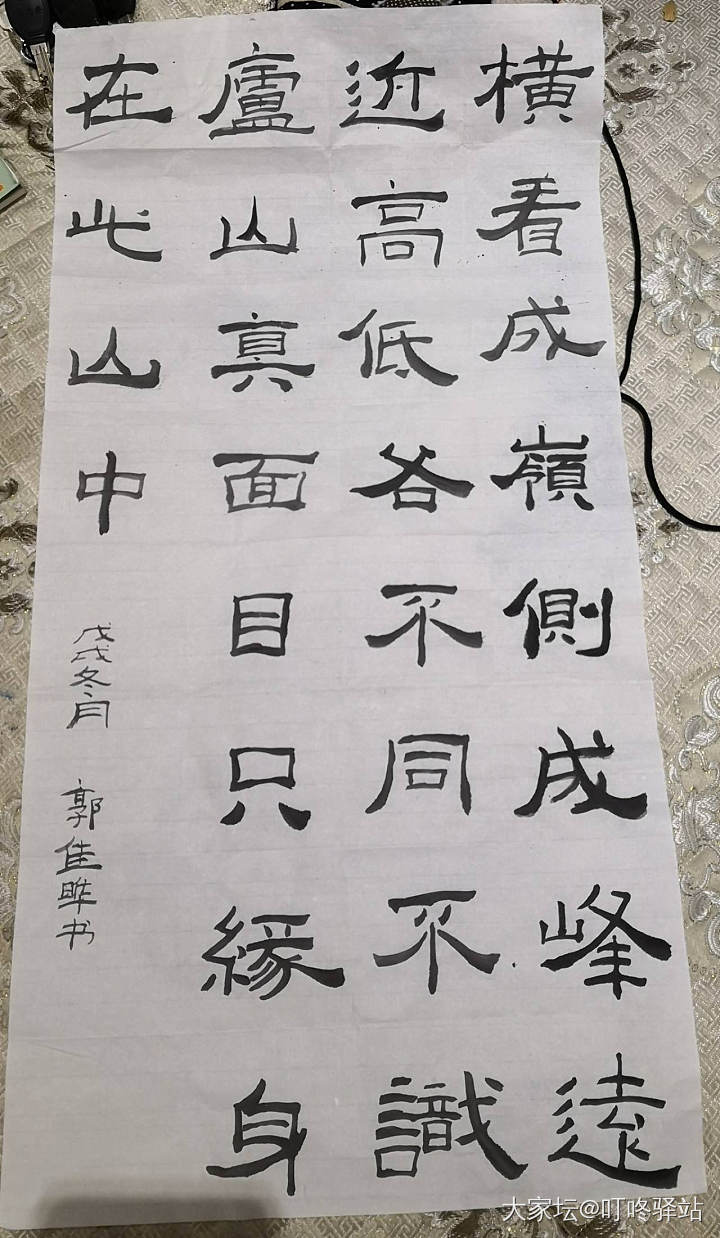 橫看成嶺側成峰遠
近高低各不同不識
廬山真面目只緣身
在此山中
戊戌冬月 郭佳晔书
大家坛@叮咚驿站